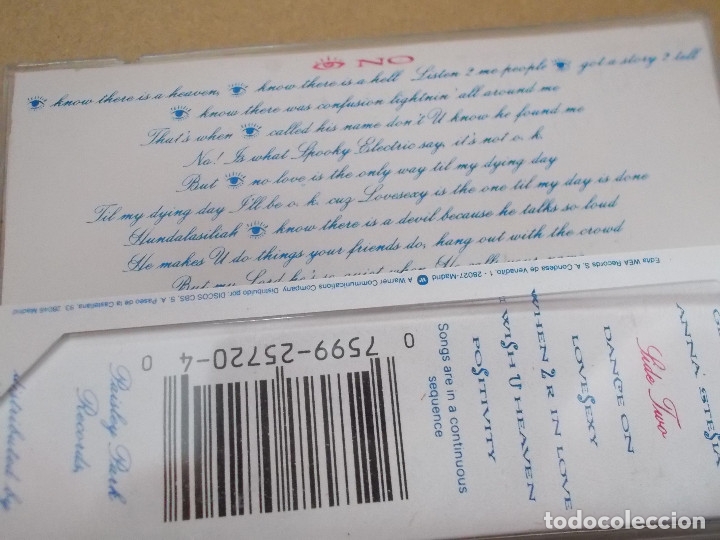 👁 NO
👁 know there is a heaven, 👁 know there is a hell Listen 2 me people 👁 got a story 2 tell
👁 know there was confusion lightnin' all around me
That's when 👁 called his name don't U know he found me
No! Is what Spooky Electric say, it's not o. k.
But 👁 no love is the only way til my dying day
Til my dying day I'll be o. k. cuz Lovesexy is the one til my day is done
Hundalasiliah 👁 know there is a devil because he talks so loud
He makes U do things your friends do, hang out with the crowd
But my Lord he's so quiet when He calls your name
Edita WEA Records S. A. Condesa de Venadito, 1 - 28027-Madrid
A Warner Communications Company Distribuido por: DISCOS CBS, S. A. Paseo de la Castellana, 93. 28046 Madrid
ANNA STESIA
Side Two
DANCE ON
LOVESEXY
WHEN 2 R IN LOVE
I WISH U HEAVEN
POSITIVITY
Songs are in a continuous
sequence
0 7599-25720-4 0
Paisley Park
Records,
distributed by
todocoleccion
todocoleccion.net